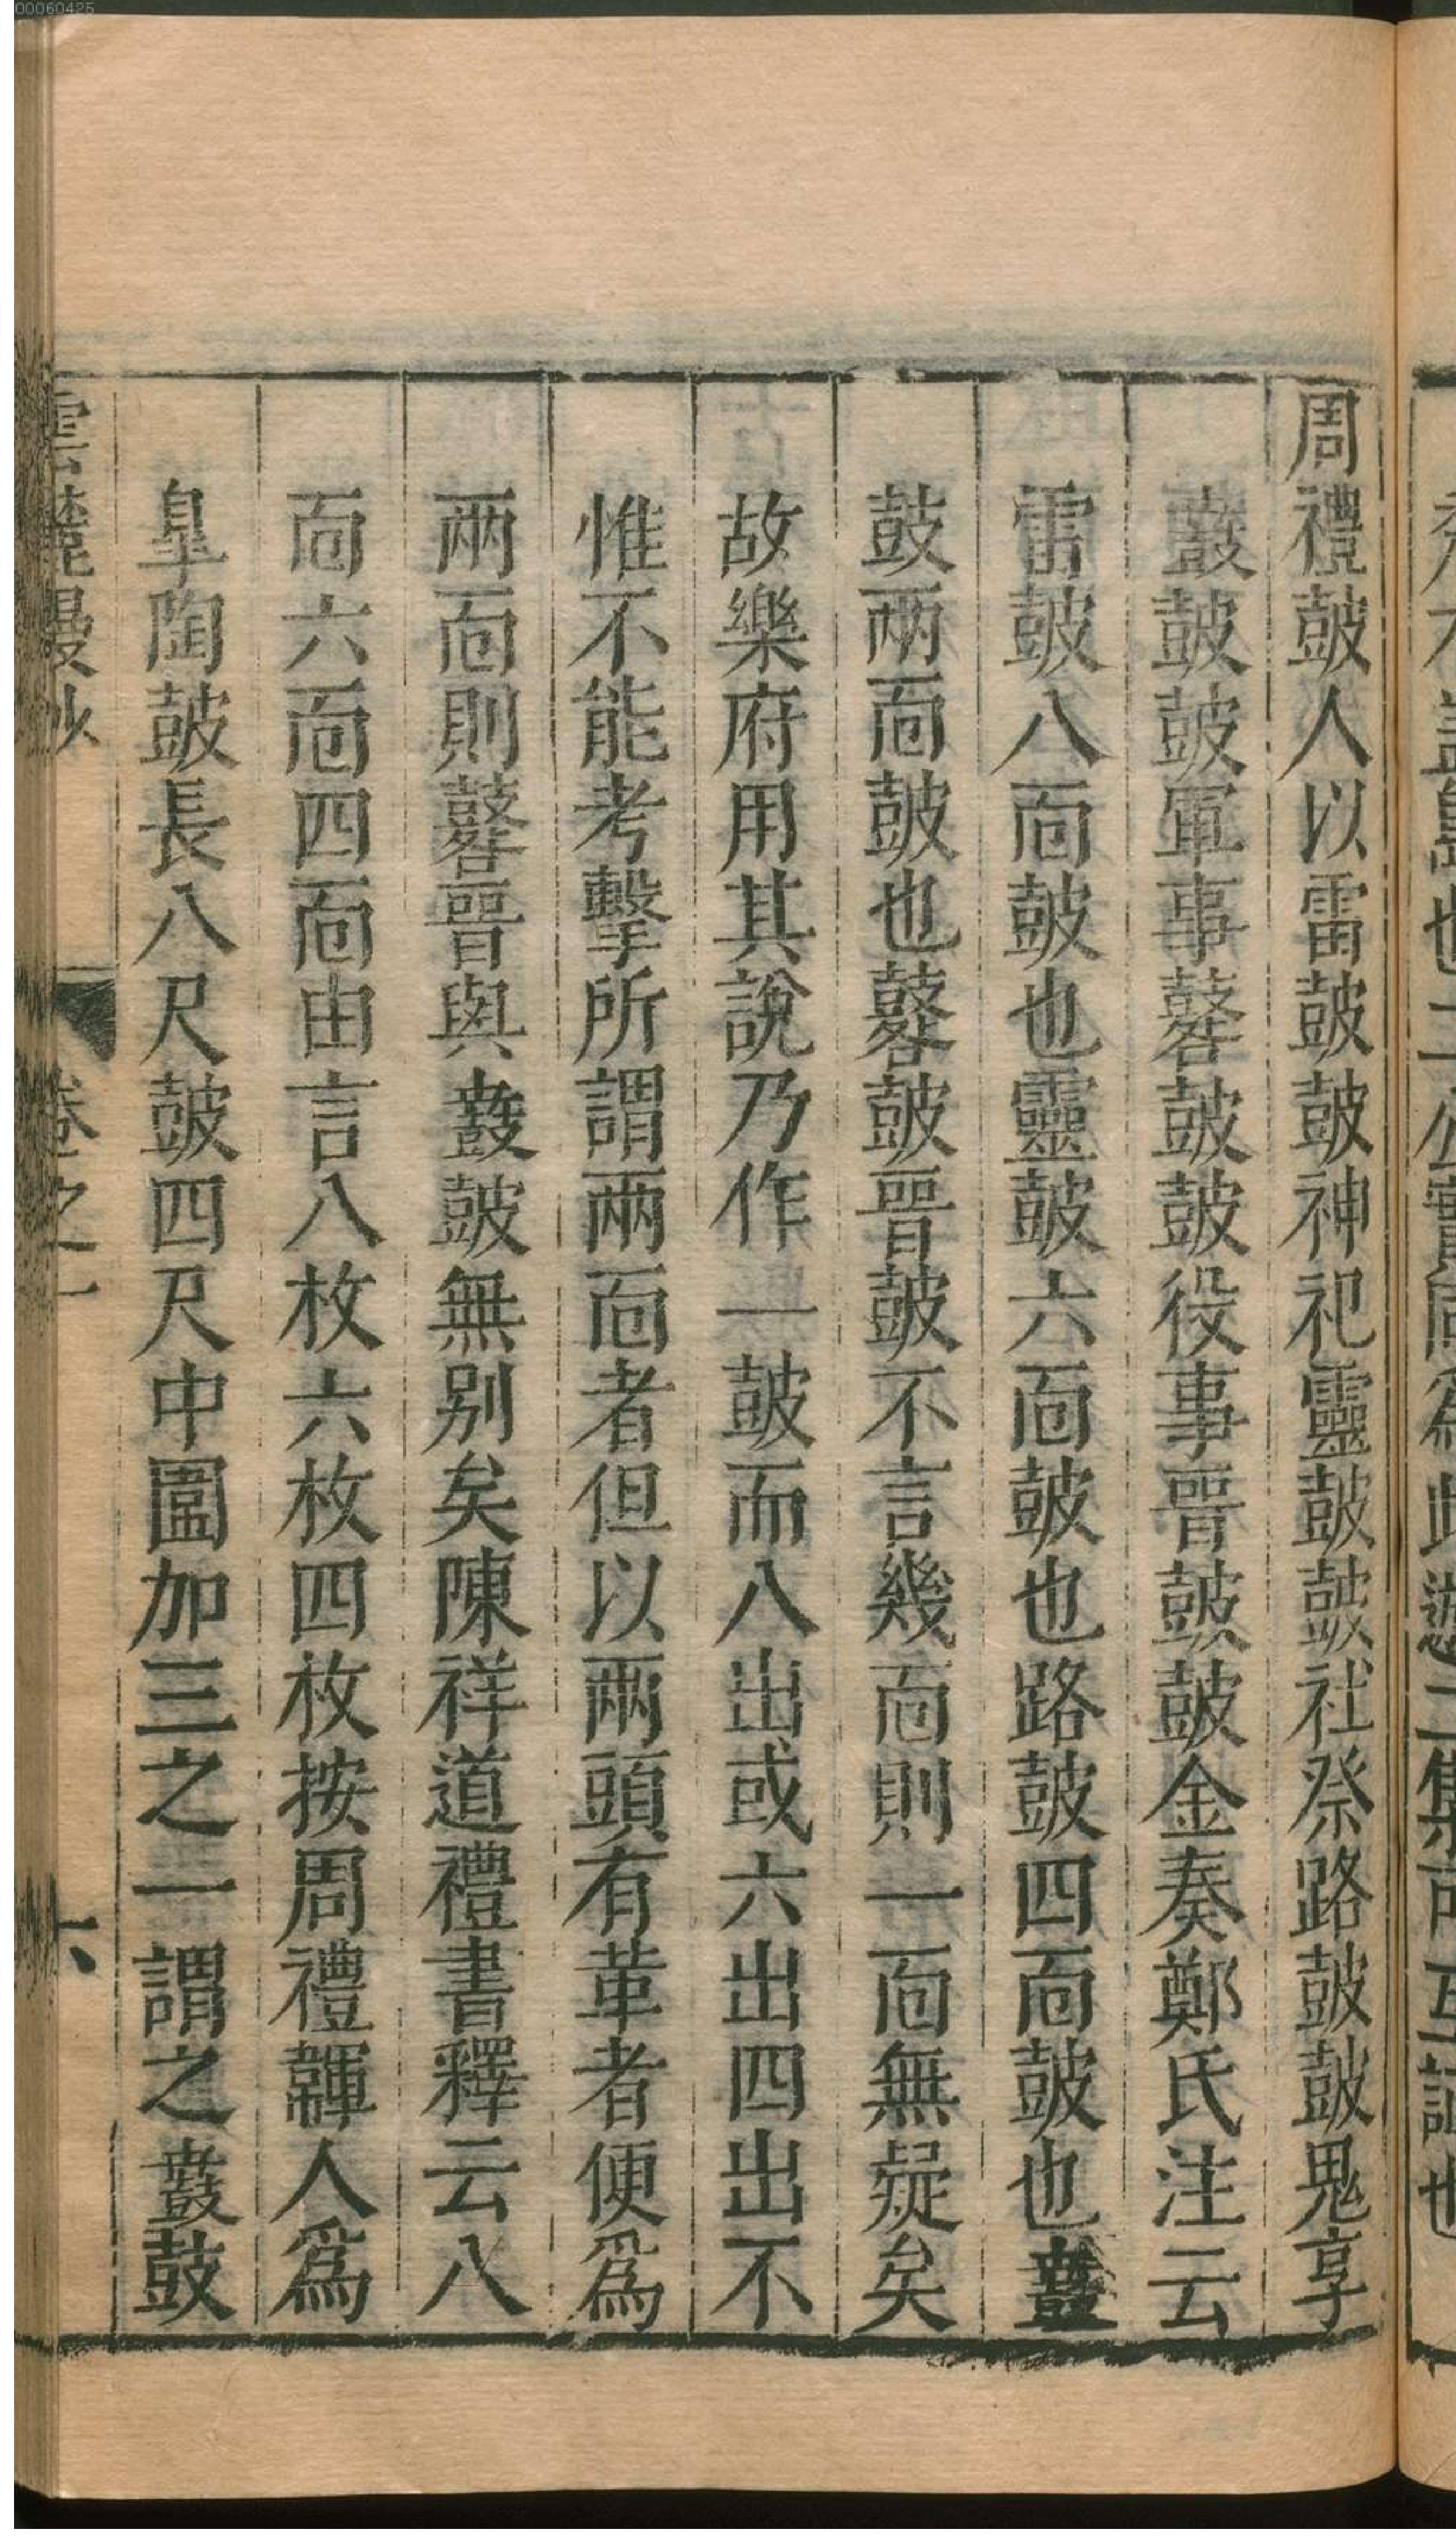 周禮鼓人以雷鼓鼓神祀靈鼓鼓社祭路鼓鼓鬼享
鼖鼓鼓軍事鼛鼓鼓役事晉鼓鼓金奏鄭氏注云
雷鼓八面鼓也靈鼓六面鼓也路鼓四面鼓也鼖
鼓兩面鼓也鼛鼓晉鼓不言幾面則一面無疑矣
故樂府用其說乃作一鼓而八出或六出四出不
惟不能考擊所謂兩面者但以兩頭有革者便爲
兩面則鼛晉與鼖鼓無别矣陳祥道禮書釋云八
面六面四面由言八枚六枚四枚按周禮韗人爲
皐陶鼓長八尺鼓四尺中圍加三之一謂之鼖鼓
雲麓漫抄
卷之一
六
00060425